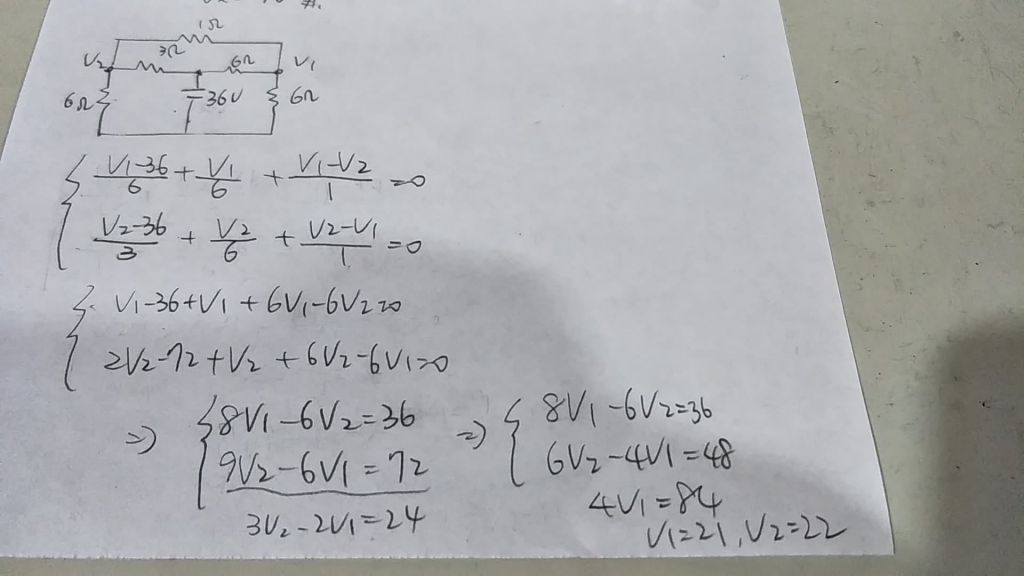 1Ω
3Ω
V2 6Ω V1
6Ω 36V 6Ω
{ (V1-36)/6 + V1/6 + (V1-V2)/1 = 0
(V2-36)/3 + V2/6 + (V2-V1)/1 = 0
{ V1-36+V1+6V1-6V2=0
2V2-72+V2+6V2-6V1=0
=> { 8V1-6V2=36 => { 8V1-6V2=36
9V2-6V1=72 6V2-4V1=48
3V2-2V1=24 4V1=84
V1=21, V2=22